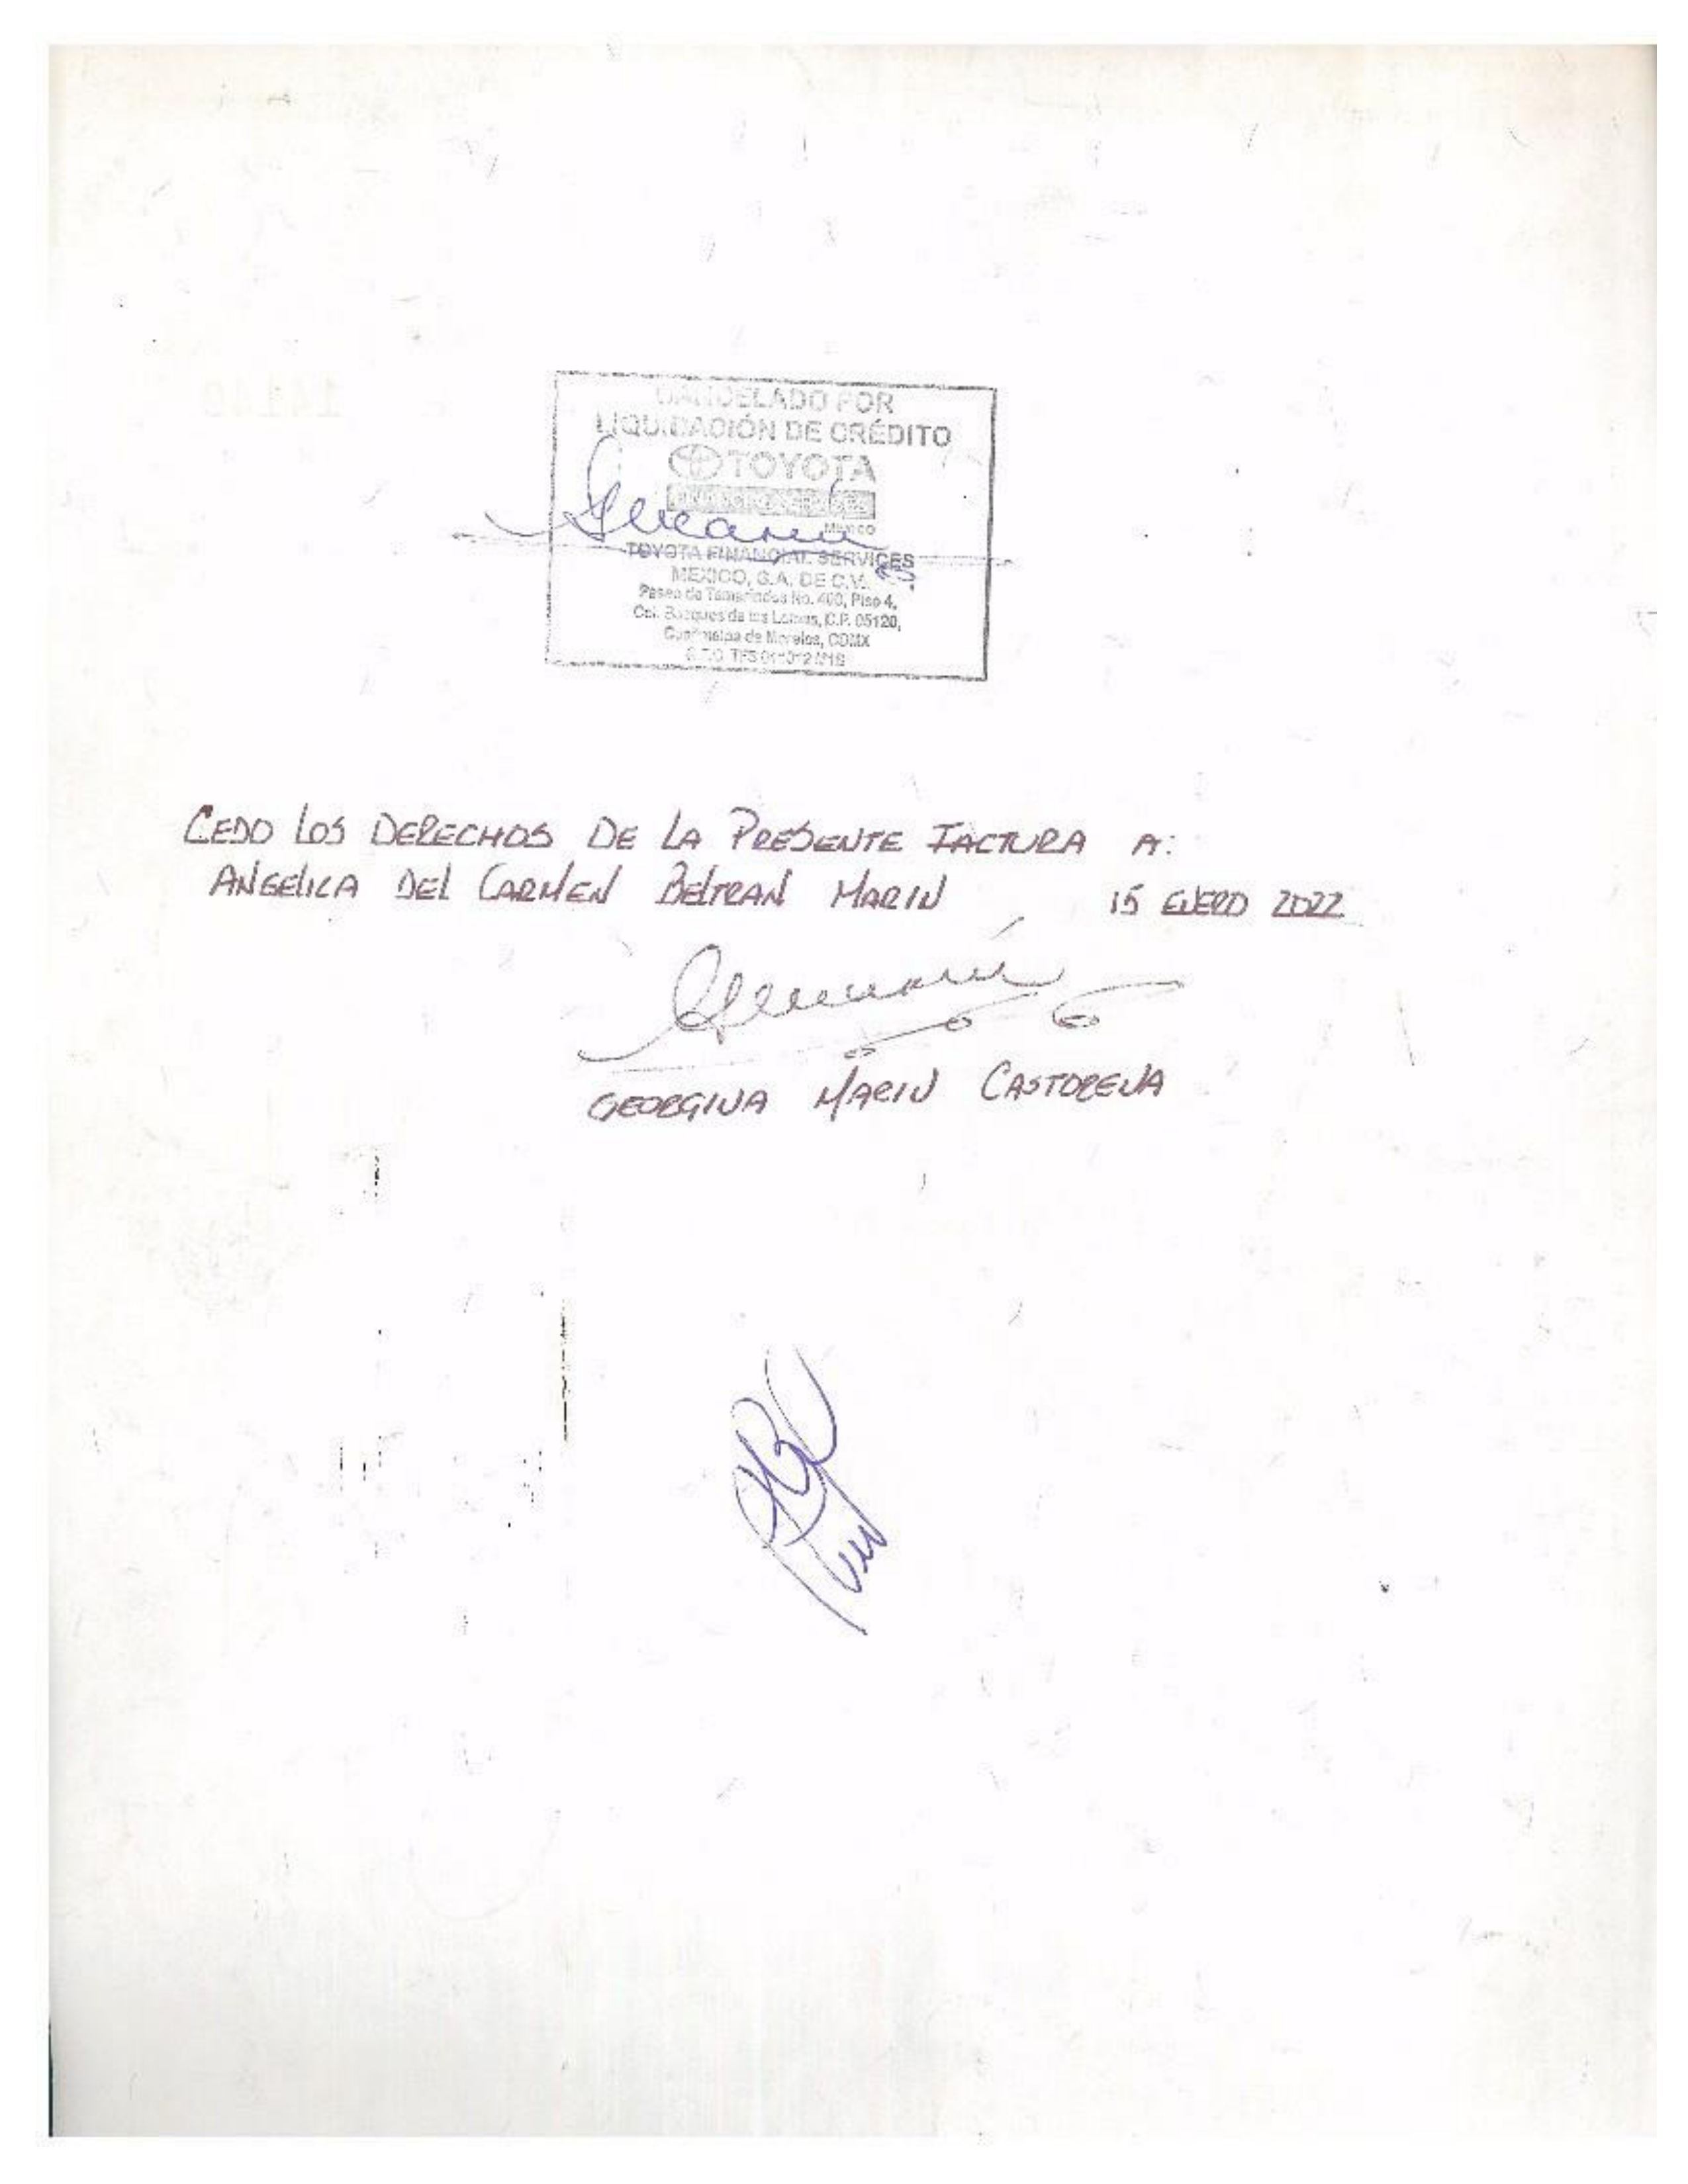 CANCELADO POR
LIQUIDACIÓN DE CRÉDITO
TOYOTA
México
TOYOTA FINANCIAL SERVICES
MEXICO, S.A. DE C.V.
Paseo de Tamarindos No. 400, Piso 4,
Col. Bosques de las Lomas, C.P. 05120,
Cuajimalpa de Morelos, CDMX
CEDO LOS DERECHOS DE LA PRESENTE FACTURA A:
ANGELICA DEL CARMEN BELTRAN MARIN 15 ENERO 2022
GEORGINA MARIN CASTORENA